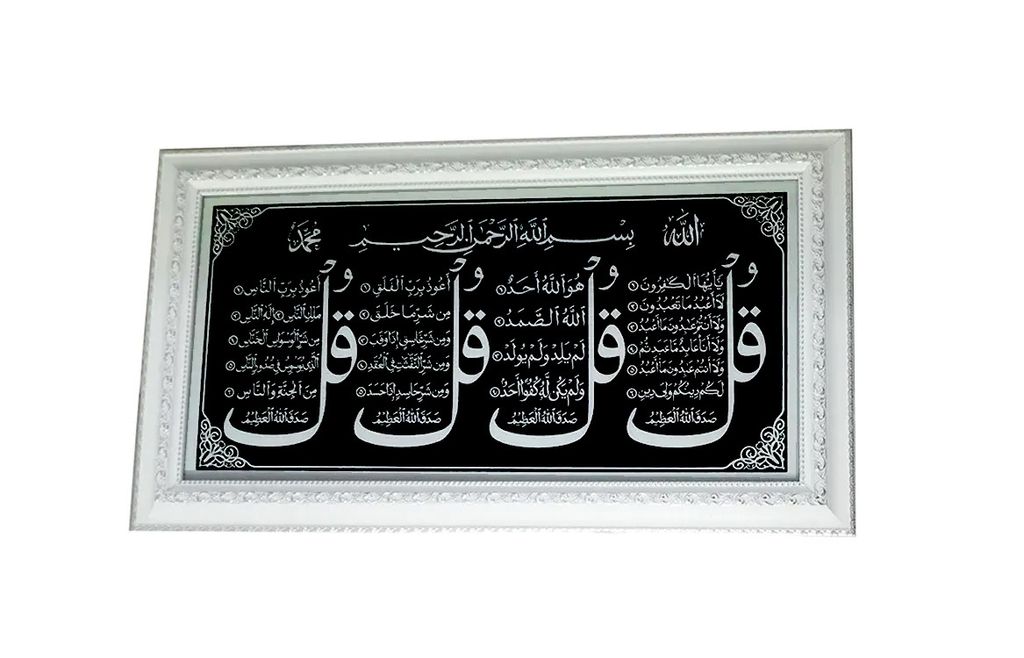 الله
بِسْمِ اللَّهِ الرَّحْمَٰنِ الرَّحِيمِ
محمد
قُلْ
يَا أَيُّهَا الْكَافِرُونَ ١
لَا أَعْبُدُ مَا تَعْبُدُونَ ٢
وَلَا أَنْتُمْ عَابِدُونَ مَا أَعْبُدُ ٣
وَلَا أَنَا عَابِدٌ مَا عَبَدْتُمْ ٤
وَلَا أَنْتُمْ عَابِدُونَ مَا أَعْبُدُ ٥
لَكُمْ دِينُكُمْ وَلِيَ دِينِ ٦
صَدَقَ اللَّهُ الْعَظِيمُ
قُلْ
هُوَ اللَّهُ أَحَدٌ ١
اللَّهُ الصَّمَدُ ٢
لَمْ يَلِدْ وَلَمْ يُولَدْ ٣
وَلَمْ يَكُنْ لَهُ كُفُوًا أَحَدٌ ٤
صَدَقَ اللَّهُ الْعَظِيمُ
قُلْ
أَعُوذُ بِرَبِّ الْفَلَقِ ١
مِنْ شَرِّ مَا خَلَقَ ٢
وَمِنْ شَرِّ غَاسِقٍ إِذَا وَقَبَ ٣
وَمِنْ شَرِّ النَّفَّاثَاتِ فِي الْعُقَدِ ٤
وَمِنْ شَرِّ حَاسِدٍ إِذَا حَسَدَ ٥
صَدَقَ اللَّهُ الْعَظِيمُ
قُلْ
أَعُوذُ بِرَبِّ النَّاسِ ١
مَلِكِ النَّاسِ ٢ إِلَٰهِ النَّاسِ ٣
مِنْ شَرِّ الْوَسْوَاسِ الْخَنَّاسِ ٤
الَّذِي يُوَسْوِسُ فِي صُدُورِ النَّاسِ ٥
مِنَ الْجِنَّةِ وَالنَّاسِ ٦
صَدَقَ اللَّهُ الْعَظِيمُ